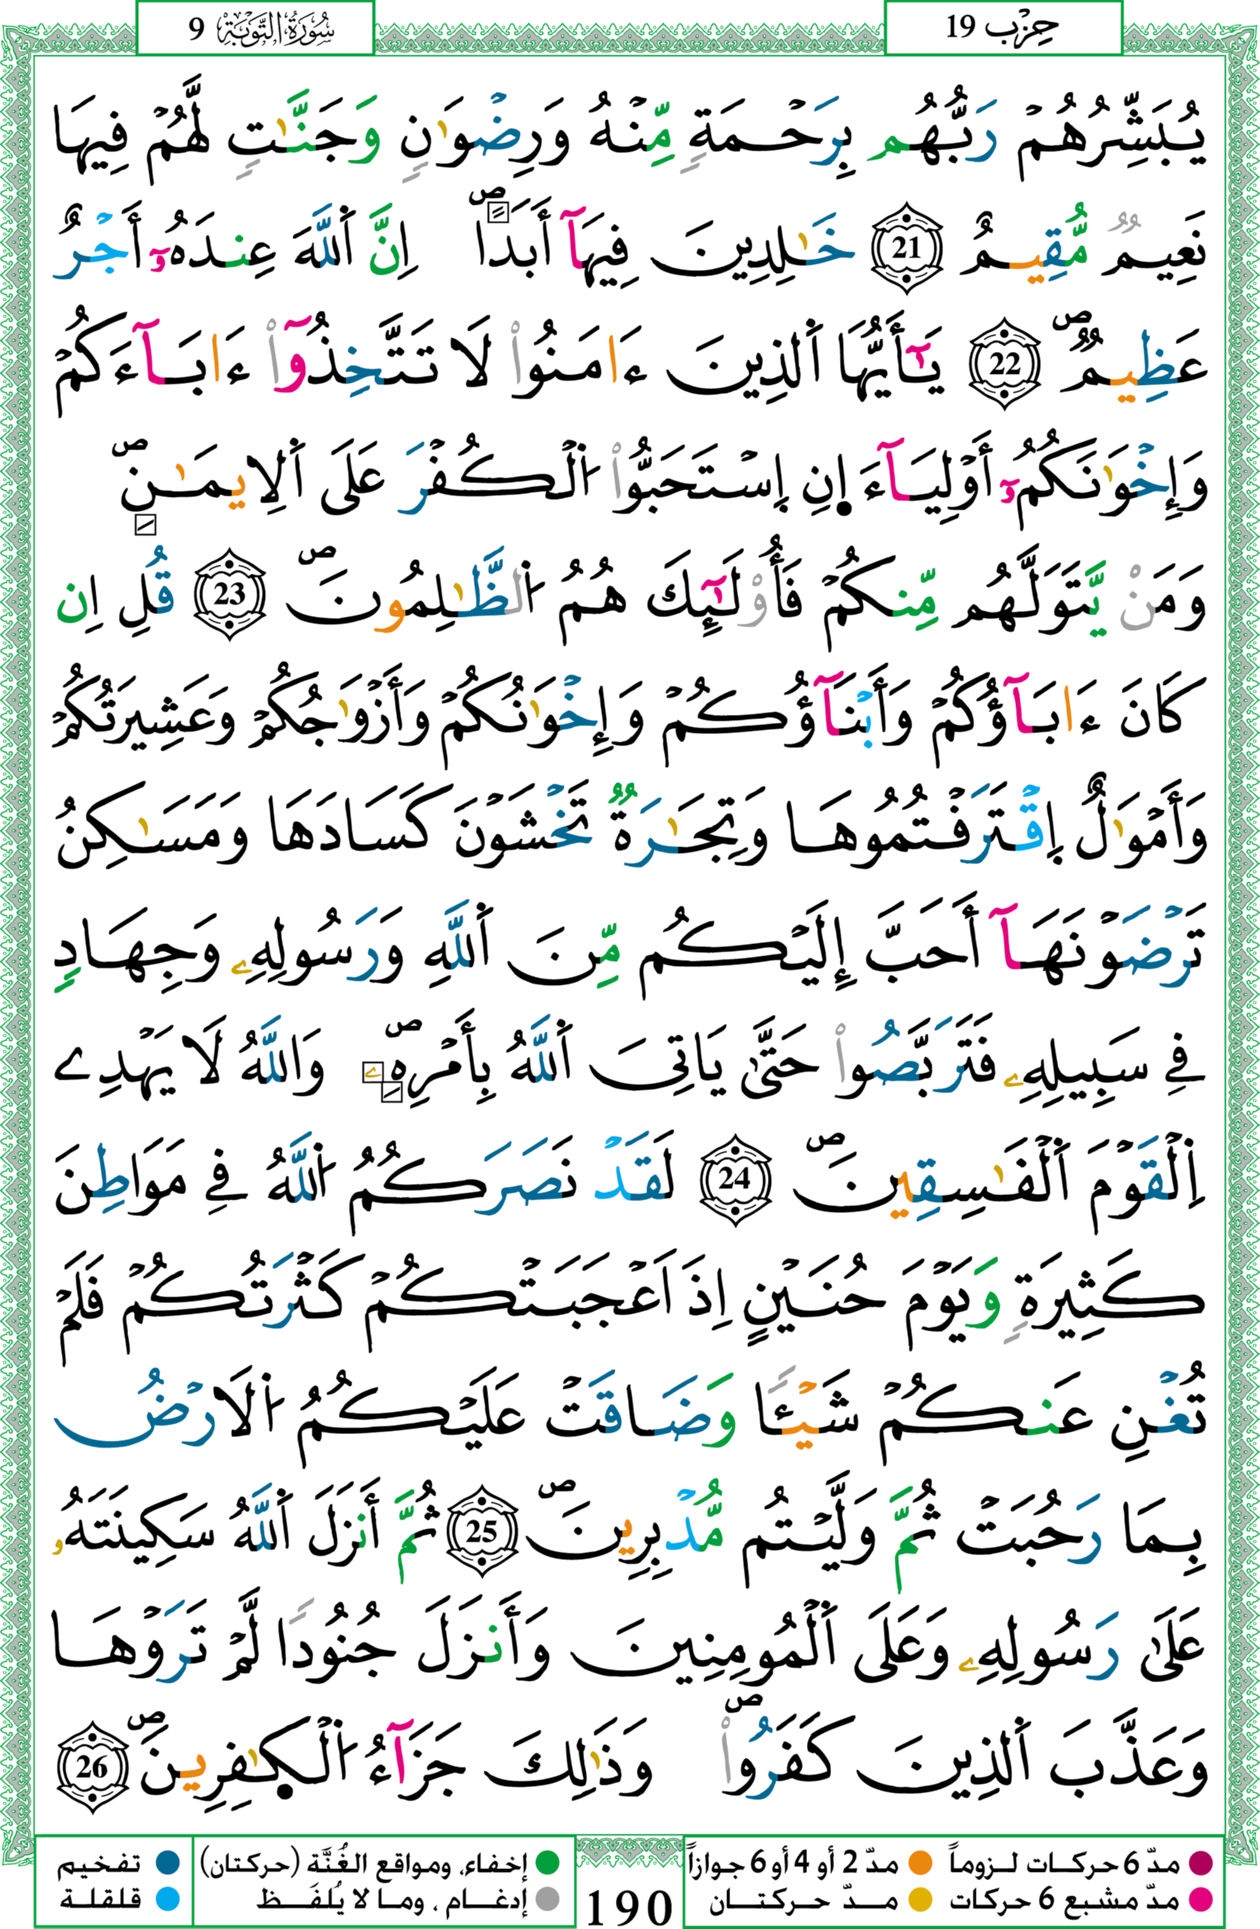 حِزْب 19
سُورَةُ التَّوْبَة 9
يُبَشِّرُهُمْ رَبُّهُم بِرَحْمَةٍ مِّنْهُ وَرِضْوَٰنٍ وَجَنَّٰتٍ لَّهُمْ فِيهَا
نَعِيمٌ مُّقِيمٌ 21 خَٰلِدِينَ فِيهَآ أَبَداًۖ اِنَّ اَ۬للَّهَ عِندَهُۥٓ أَجْرٌ
عَظِيمٌۖ 22 يَٰٓأَيُّهَا اَ۬لذِينَ ءَامَنُواْ لَا تَتَّخِذُوٓاْ ءَابَآءَكُمْ
وَإِخْوَٰنَكُمُۥٓ أَوْلِيَآءَ اِ۪نِ اِ۪سْتَحَبُّواْ اُ۬لْكُفْرَ عَلَى اَ۬لِايمَٰنِۖ
وَمَنْ يَّتَوَلَّهُم مِّنكُمْ فَأُوْلَٰٓئِكَ هُمُ اُ۬لظَّٰلِمُونَۖ 23 قُلِ اِن
كَانَ ءَابَآؤُكُمْ وَأَبْنَآؤُكُمْ وَإِخْوَٰنُكُمْ وَأَزْوَٰجُكُمْ وَعَشِيرَتُكُمْ
وَأَمْوَٰلٌ اِ۪قْتَرَفْتُمُوهَا وَتِجَٰرَةٌ تَخْشَوْنَ كَسَادَهَا وَمَسَٰكِنُ
تَرْضَوْنَهَآ أَحَبَّ إِلَيْكُم مِّنَ اَ۬للَّهِ وَرَسُولِهِۦ وَجِهَادٍ
فِے سَبِيلِهِۦ فَتَرَبَّصُواْ حَتَّىٰ يَاتِىَ اَ۬للَّهُ بِأَمْرِهِۦۖ وَاللَّهُ لَا يَهْدِے
اِ۬لْقَوْمَ اَ۬لْفَٰسِقِينَۖ 24 لَقَدْ نَصَرَكُمُ اُ۬للَّهُ فِے مَوَاطِنَ
كَثِيرَةٍ وَيَوْمَ حُنَيْنٍ اِذَ اَعْجَبَتْكُمْ كَثْرَتُكُمْ فَلَمْ
تُغْنِ عَنكُمْ شَيْـٔاً وَضَاقَتْ عَلَيْكُمُ اُ۬لَارْضُ
بِمَا رَحُبَتْ ثُمَّ وَلَّيْتُم مُّدْبِرِينَۖ 25 ثُمَّ أَنزَلَ اَ۬للَّهُ سَكِينَتَهُۥ
عَلَىٰ رَسُولِهِۦ وَعَلَى اَ۬لْمُومِنِينَ وَأَنزَلَ جُنُوداً لَّمْ تَرَوْهَا
وَعَذَّبَ اَ۬لذِينَ كَفَرُواْۖ وَذَٰلِكَ جَزَآءُ اُ۬لْكٰ۪فِرِينَۖ 26
مدّ 6 حركات لـزوماً مدّ 2 أو 4 أو 6 جوازاً إخفاء، ومواقع الغُنَّة (حركتان) تفخيم
مدّ مشبع 6 حركات مــدّ حركتــان إدغــام ، ومـا لا يُلفَـظ قلقلة
190